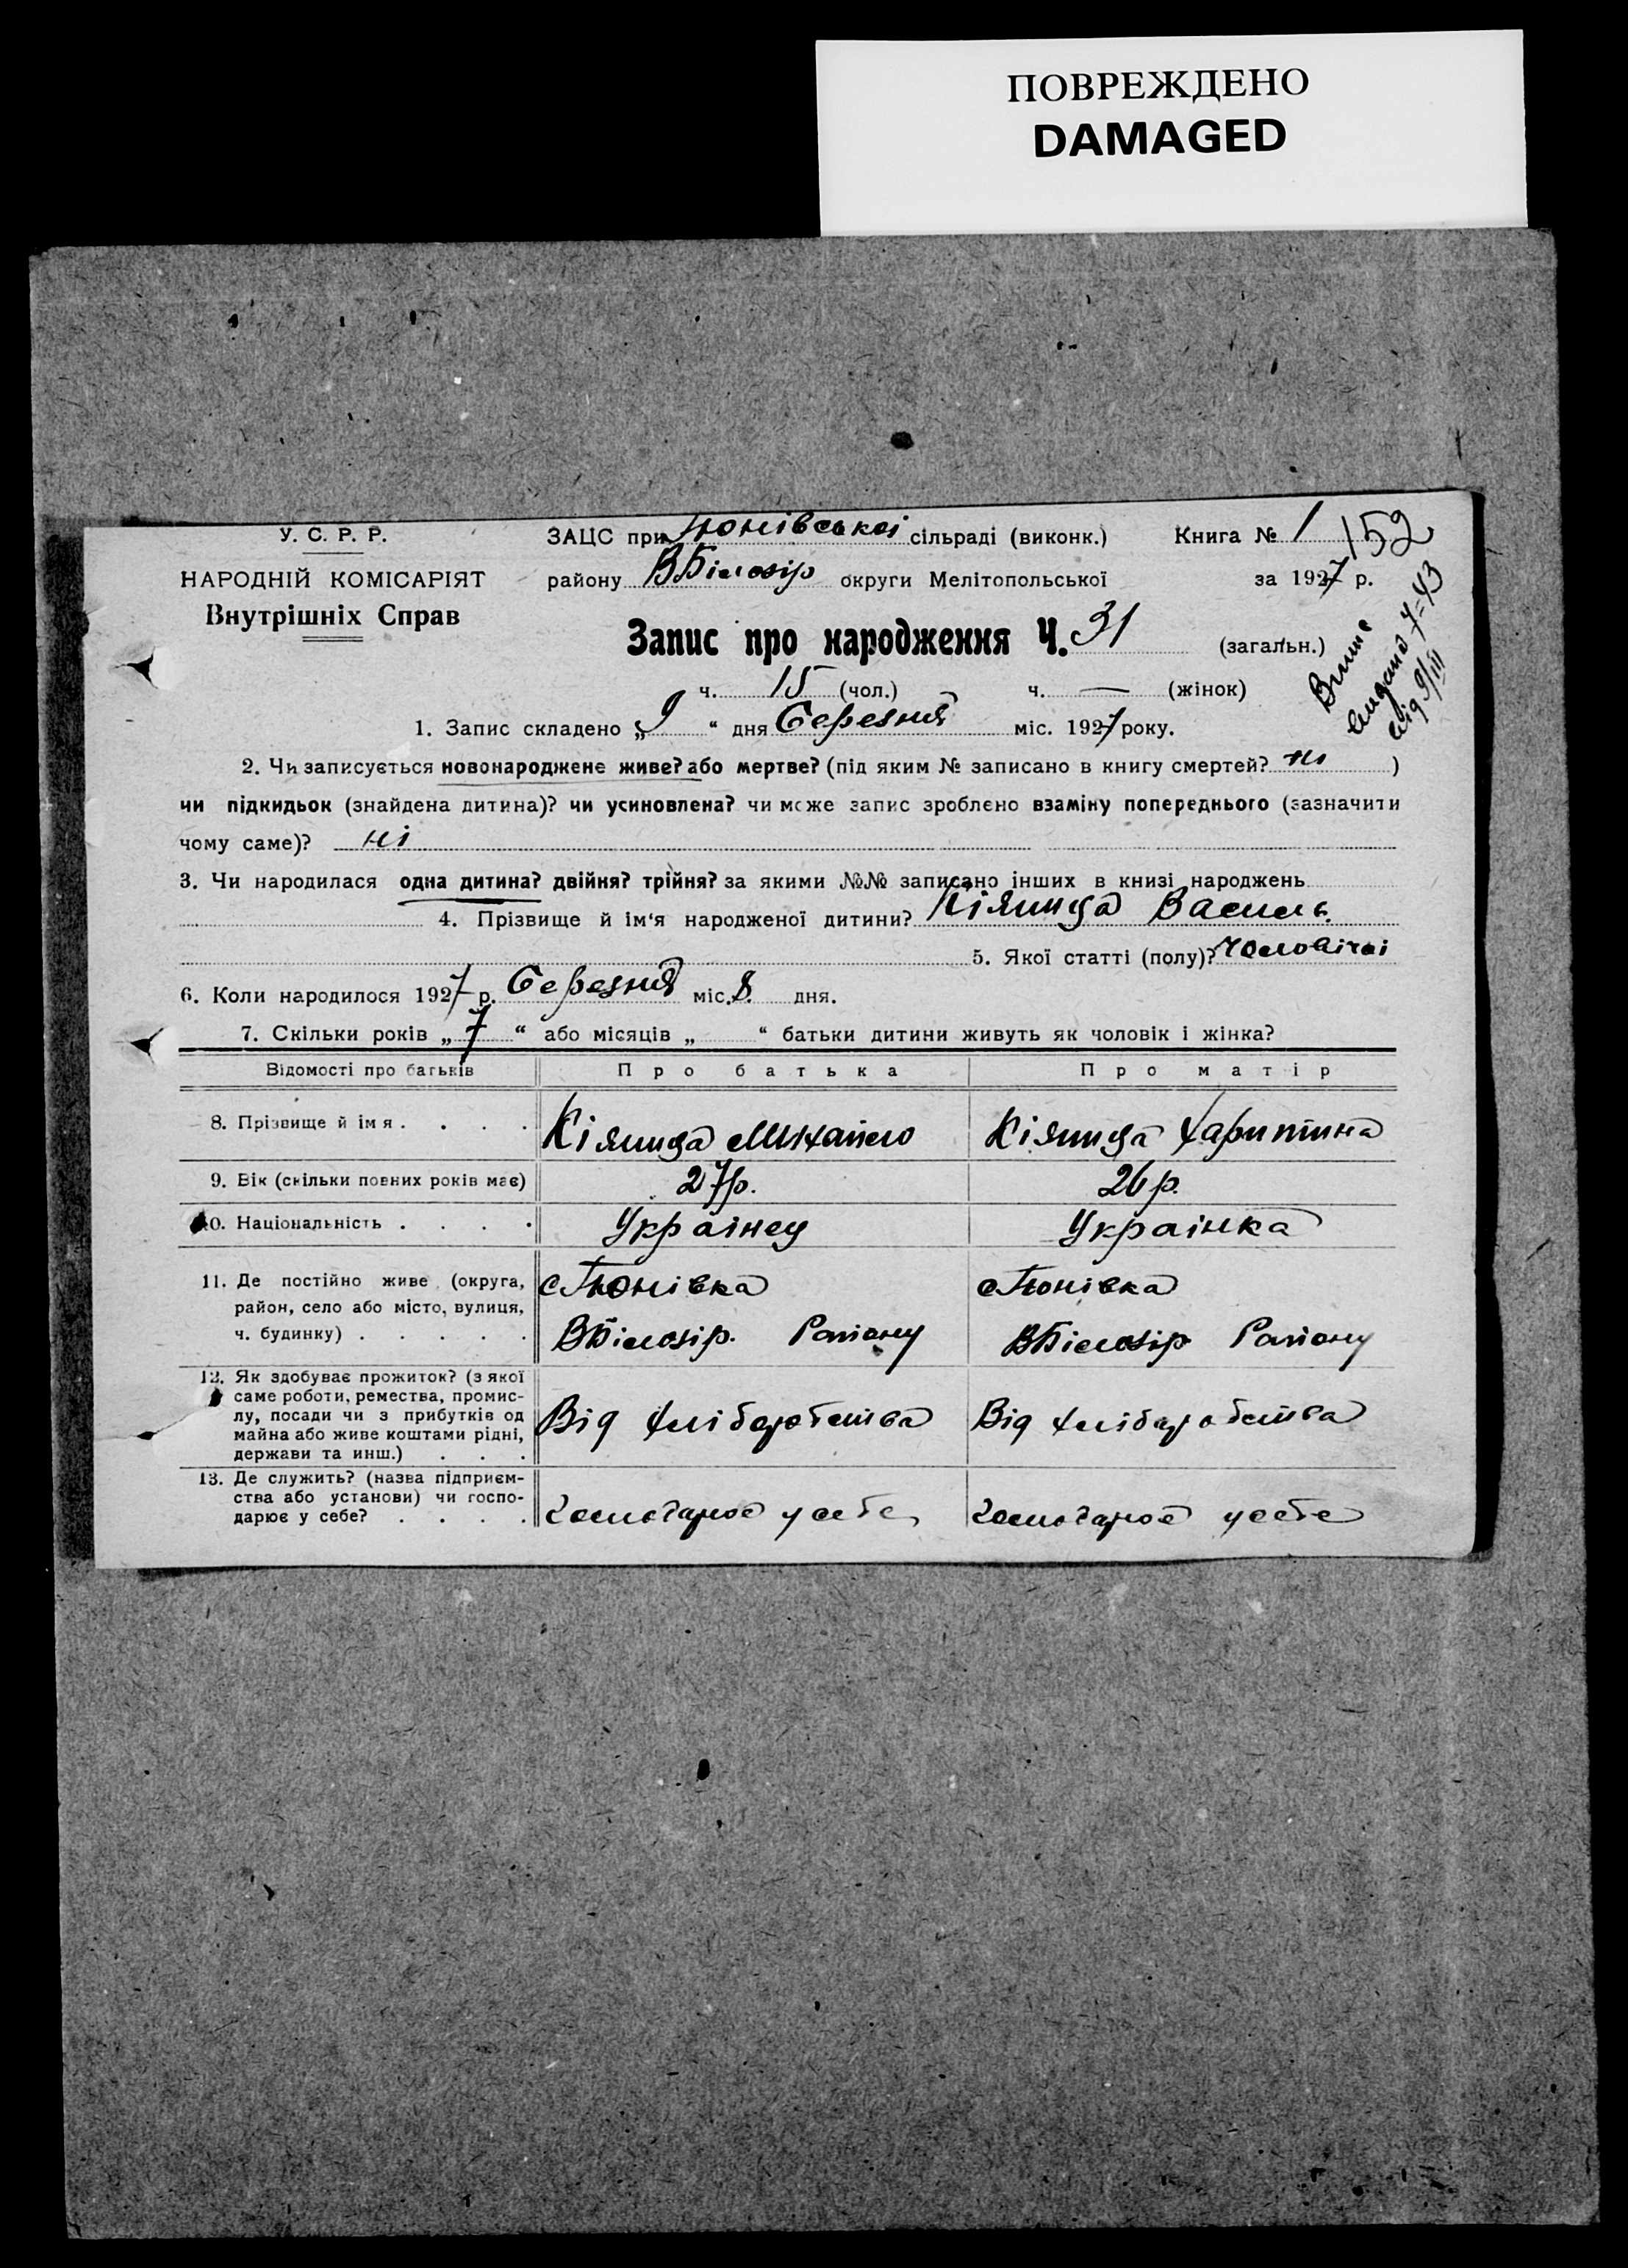 ПОВРЕЖДЕНО
DAMAGED
У. С. Р. Р.
НАРОДНІЙ КОМІСАРІЯТ
Внутрішніх Справ
ЗАЦС при Тюнівської сільраді (виконк.)
району ВБілозір округи Мелітопольської
Книга № 1
152
за 1927 р.
Запис про народження Ч. 31 (загальн.)
ч. 15 (чол.) ч. — (жінок)
видано 7-43
від 9/III
1. Запис складено „ 9 “ дня Березня міс. 1927 року.
2. Чи записується новонароджене живе? або мертве? (під яким № записано в книгу смертей? ні )
чи підкидьок (знайдена дитина)? чи усиновлена? чи може запис зроблено взаміну попереднього (зазначити
чому саме)? ні
3. Чи народилася одна дитина? двійня? трійня? за якими №№ записано інших в книзі народжень
4. Прізвище й ім‘я народженої дитини? Кіяница Василь.
5. Якої статті (полу)? Чоловічої
6. Коли народилося 1927 р. Березня міс. 8. дня.
7. Скільки років „ 7 “ або місяців „ “ батьки дитини живуть як чоловік і жінка?
Відомості про батьків Про батька Про матір
8. Прізвище й ім я . . . . Кіяница Михайло Кіяница Харитина
9. Вік (скільки повних років має) 27р. 26 р.
10. Національність . . . . Українец Українка
11. Де постійно живе (округа,
район, село або місто, вулиця,
ч. будинку) . . . . .
с Тюнівка
ВБілозір. Району
с Тюнівка
ВБілозір Району
12. Як здобуває прожиток? (з якої
саме роботи, ремества, промис-
лу, посади чи з прибутків од
майна або живе коштами рідні,
держави та инш.) . . .
Від хліборобства
Від хліборобства
13. Де служить? (назва підприєм-
ства або установи) чи госпо-
дарює у себе? . . . .
Господарює у себе
Господарює у себе